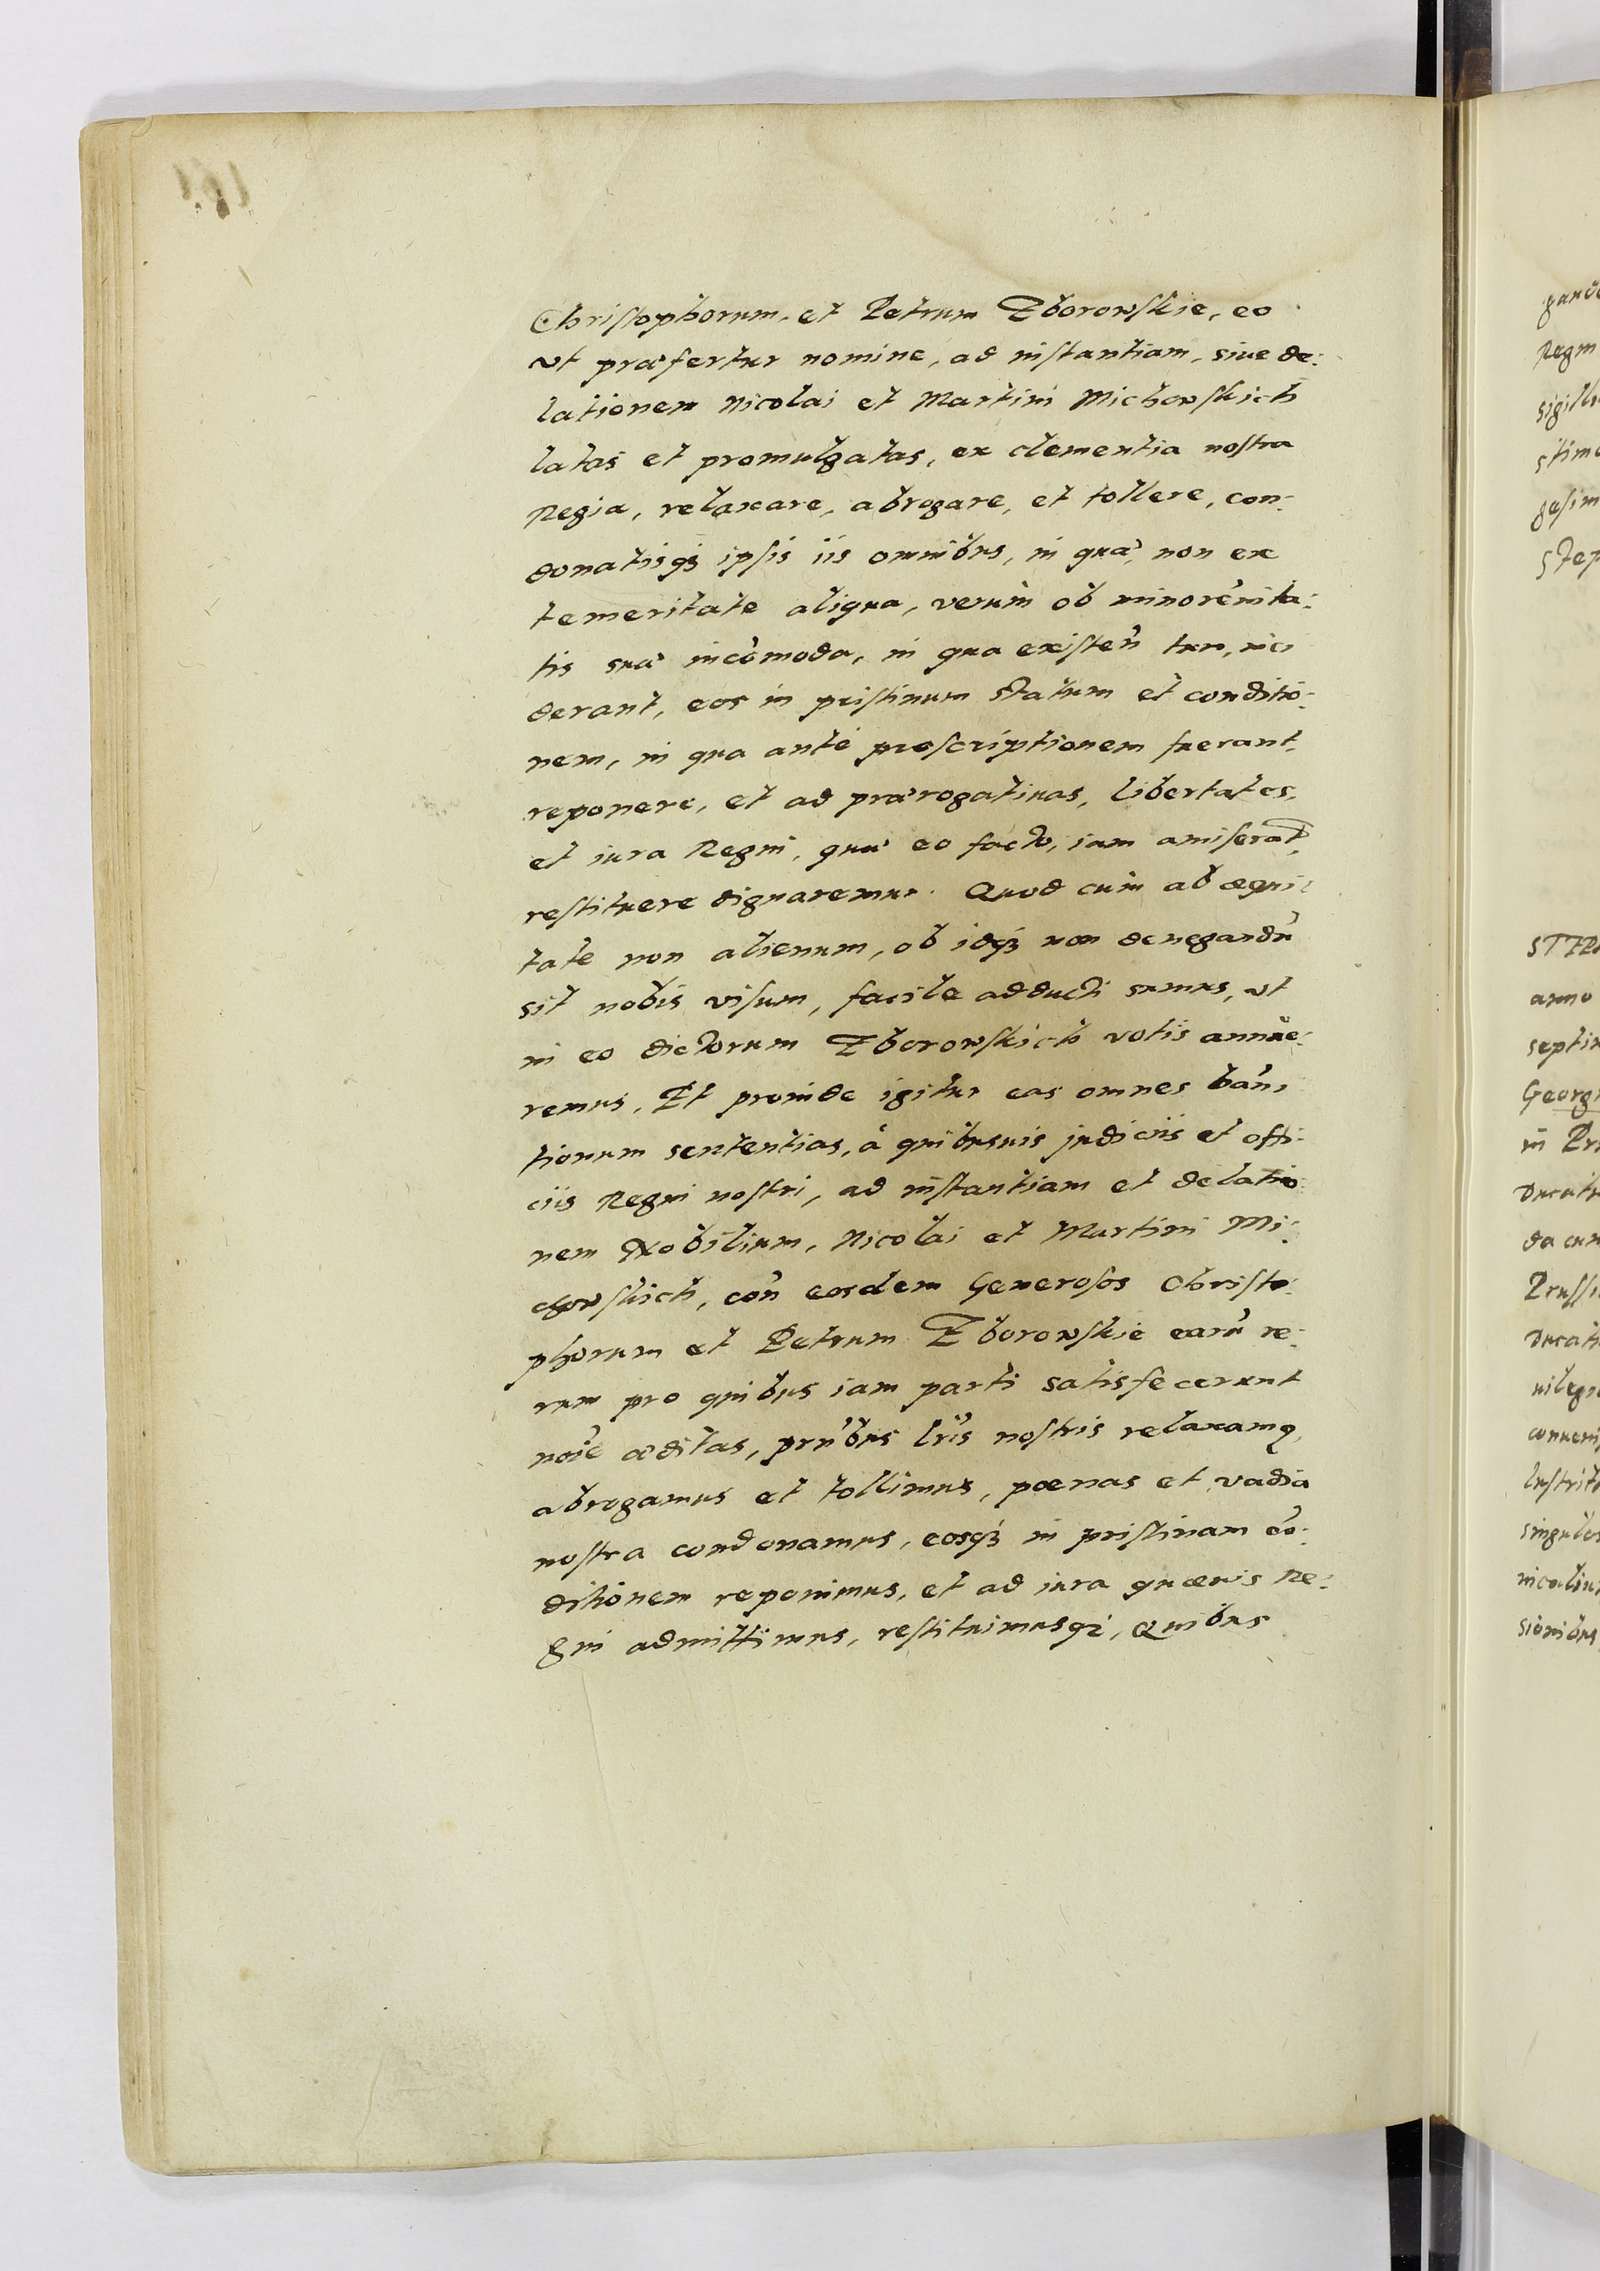 Christophorum, et Petrum Zborowskie, eo
vt præfertur nomine, ad instantiam, siue de:
lationem Nicolai et Martini Michowskich
latas et promulgatas, ex clementia nostra
Regia, relaxare, abrogare, et tollere, con:
donatisq3 ipsis iis omnibus, in quæ, non ex
temeritate aliqua, verum ob minorēnita:
tis suæ incōmoda, in qua existen̄ tun, inci
derant, eos in pristinum statum et conditio:
nem, in qua ante proscriptionem fuerant
reponere, et ad prærogatiuas, libertates,
et iura Regni, quæ eo facto, iam amiserāt,
restituere dignaremur. Quod cum ab æqui:
tate non alienum, ob idq3 non denegandū
sit nobis visum, facile adducti sumus, vt
in eo dictorum Zborowskich votis annue:
remus. Et proinde igitur eas omnes ban̄i
tionum sententias, à quibusuis judiciis et offi:
ciis Regni nostri, ad instantiam et delatio:
nem Nobilium, Nicolai et Martini Mi:
chowskich, con̄ eosdem Generosos Christo:
phorum et Petrum Zborowskie earū re:
rum pro quibus iam parti satisfecerunt
noīe æditas, prn̄bus lrīs nostris relaxamq,
abrogamus et tollimus, pœnas et vadia
nostra condonamus, eosq3 in pristinam cō:
ditionem reponimus, et ad iura quæuis Re:
gni admittimus, restituimusq3, Quibus
Regni
STEP
anno
Georg